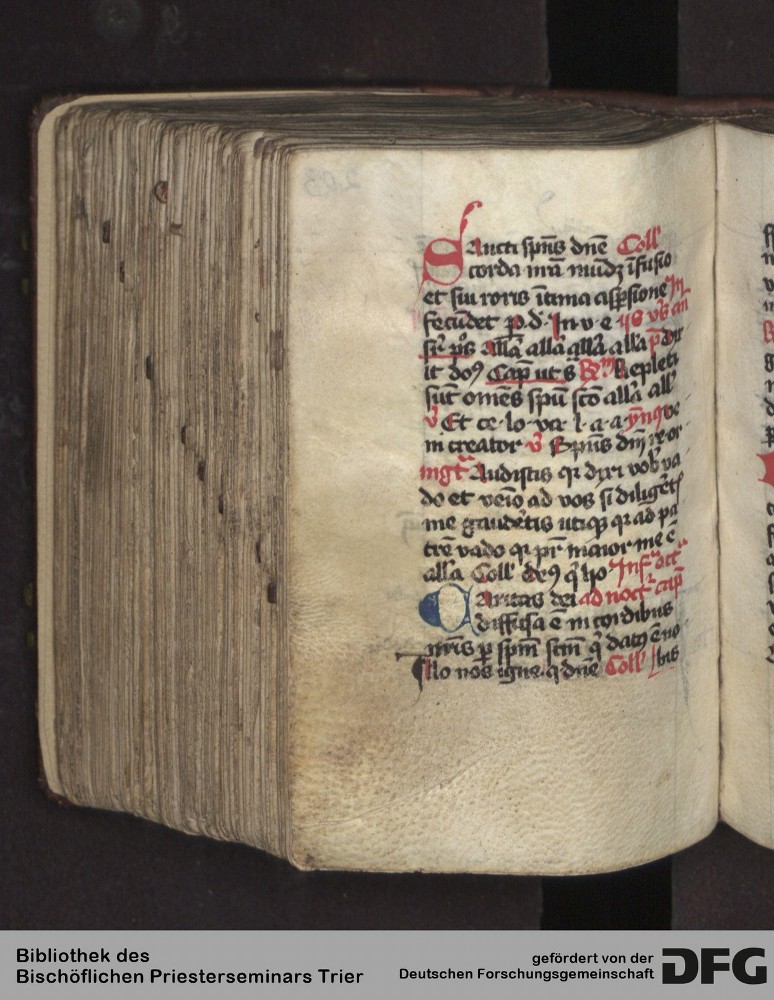 Sancti spūs dnē Coll'
corda nrā mūdz īfusio
et sui roris ītima aspsione In
fecūdet p.d. In v e
all'a all'a all'a all'a
Cap ut s Repleti
sūt omēs spū scō all'a all'
Et ce lo va l a a ymq ve
ni creator v Spūs dnī re or
Audistis qr dixi vob va
do et venio ad vos si diligetis
me gauderis utiqz qr ad pa
trē vado qr pr maior me ē
all'a Coll' de9 q ho
Caritas dei ad noct cap
diffusa ē in cordibus
nris p spm scm q dat9 ē no
Illo nos igne q dnē Coll' bis
Bibliothek des
Bischöflichen Priesterseminars Trier
gefördert von der
Deutschen Forschungsgemeinschaft DFG